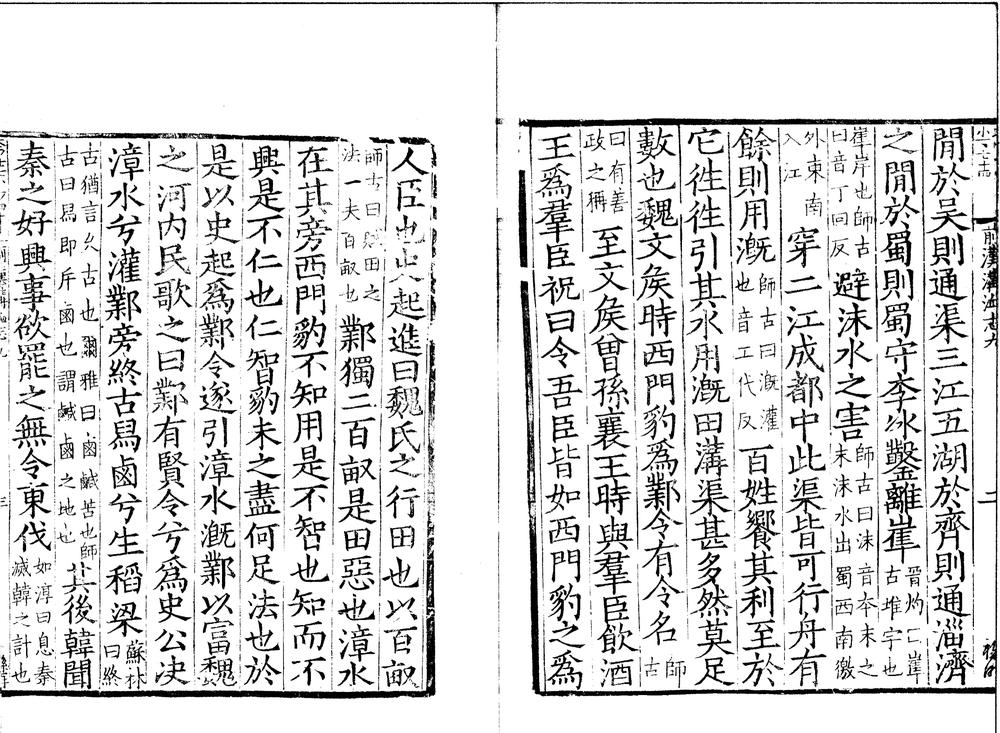 閒於吳則通渠三江五湖於齊則通淄濟
之閒於蜀則蜀守李冰鑿離崔晉灼曰崔古堆字也
崔岸也師古曰音丁回反避沫水之害師古曰沫音本末之末沫水出蜀西南徼
外東南入江穿二江成都中此渠皆可行舟有
餘則用溉師古曰溉灌也音工代反百姓饗其利至於
它往往引其水用溉田溝渠甚多然莫足
數也魏文矦時西門豹爲鄴令有令名師古
曰有善政之稱至文矦曾孫襄王時與羣臣飲酒
王爲羣臣祝曰令吾臣皆如西門豹之爲
人臣也史起進曰魏氏之行田也以百畝
師古曰賦田之法一夫百畝也鄴獨二百畝是田惡也漳水
在其旁西門豹不知用是不智也知而不
興是不仁也仁智豹未之盡何足法也於
是以史起爲鄴令遂引漳水溉鄴以富魏
之河内民歌之曰鄴有賢令兮爲史公决
漳水兮灌鄴旁終古舄鹵兮生稻梁蘇林曰終
古猶言久古也爾雅曰鹵鹹苦也師古曰舄即斥鹵也謂鹹鹵之地也其後韓聞
秦之好興事欲罷之無令東伐如淳曰息秦滅韓之計也
前漢溝洫志九
二
三